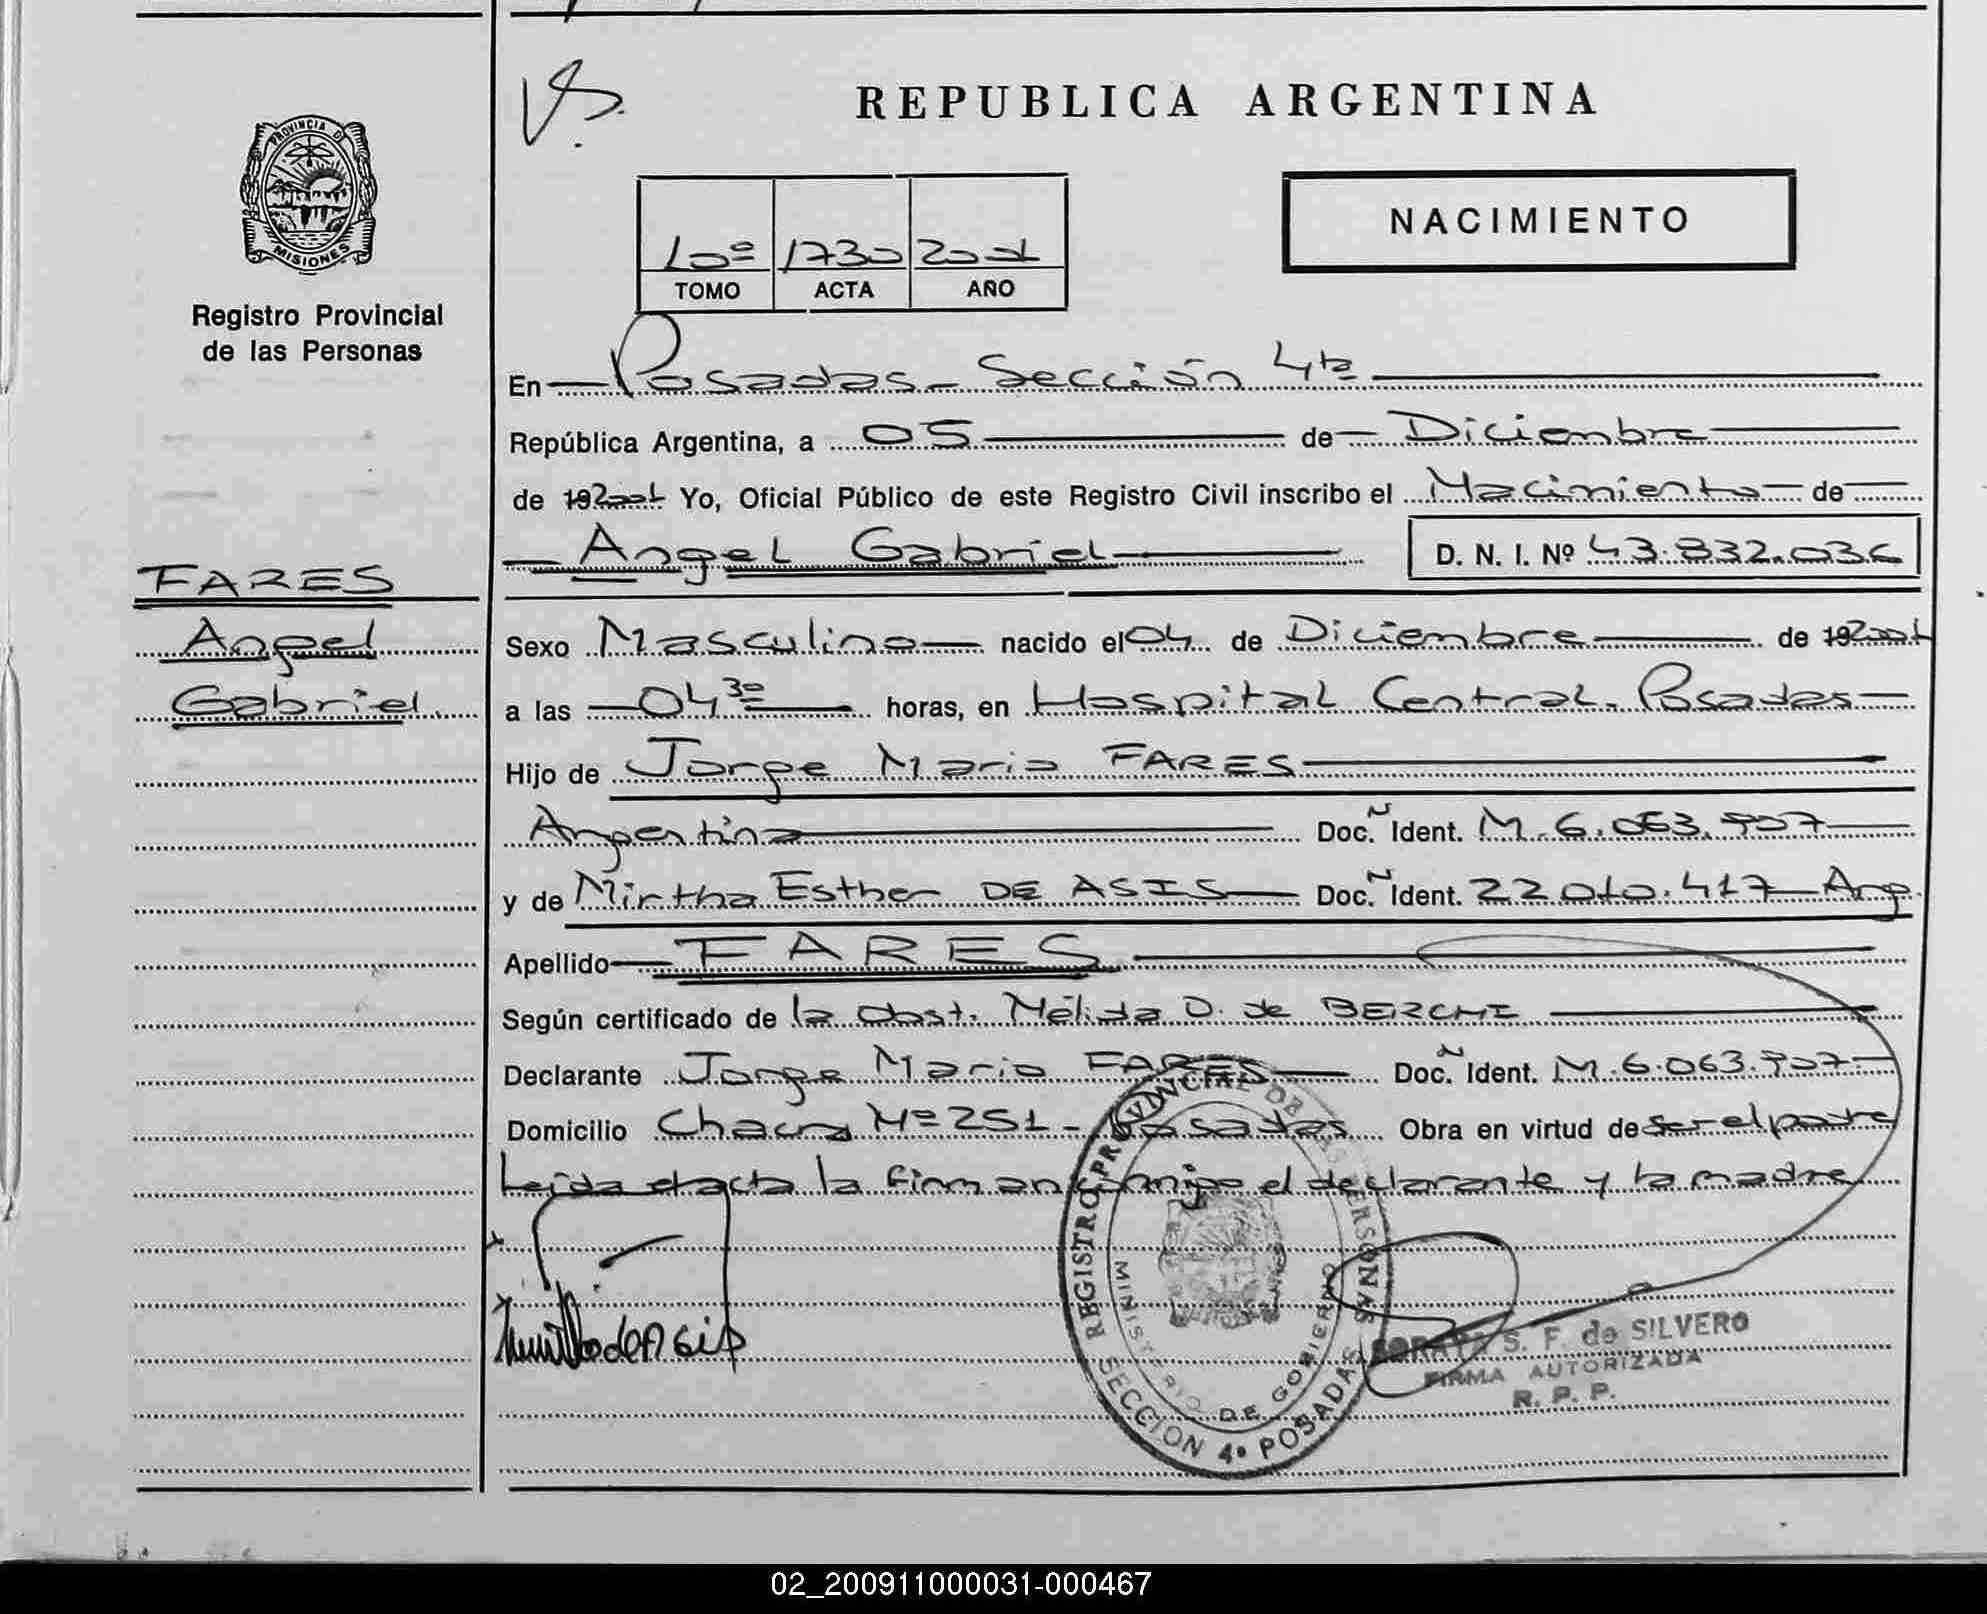 REPUBLICA ARGENTINA
PROVINCIA DE
MISIONES
Registro Provincial
de las Personas
10º 1730 2001
TOMO ACTA AÑO
NACIMIENTO
En Posadas - Sección 4ta
República Argentina, a 05 de Diciembre
de 192001 Yo, Oficial Público de este Registro Civil inscribo el Nacimiento de
Angel Gabriel D. N. I. Nº 43.832.036
FARES
Angel
Gabriel.
Sexo Masculino nacido el 04 de Diciembre de 192001
a las 04 30 horas, en Hospital Central. Posadas
Hijo de Jorge Mario FARES
Argentino Doc. Ident. M. 6.063.907
y de Mirtha Esther DE ASIS Doc. Ident. 22.010.417 Arg.
Apellido FARES
Según certificado de la Obst. Nélida D. de BERCHI
Declarante Jorge Mario FARES Doc. Ident. M. 6.063.907
Domicilio Chacra Nº 251 - Posadas Obra en virtud de ser el padre
Leída el acta la firman conmigo el declarante y la madre
REGISTRO PROVINCIAL DE LAS PERSONAS
MINISTERIO DE GOBIERNO
SECCION 4º POSADAS
S. F. de SILVERO
FIRMA AUTORIZADA
R. P. P.
02_200911000031-000467